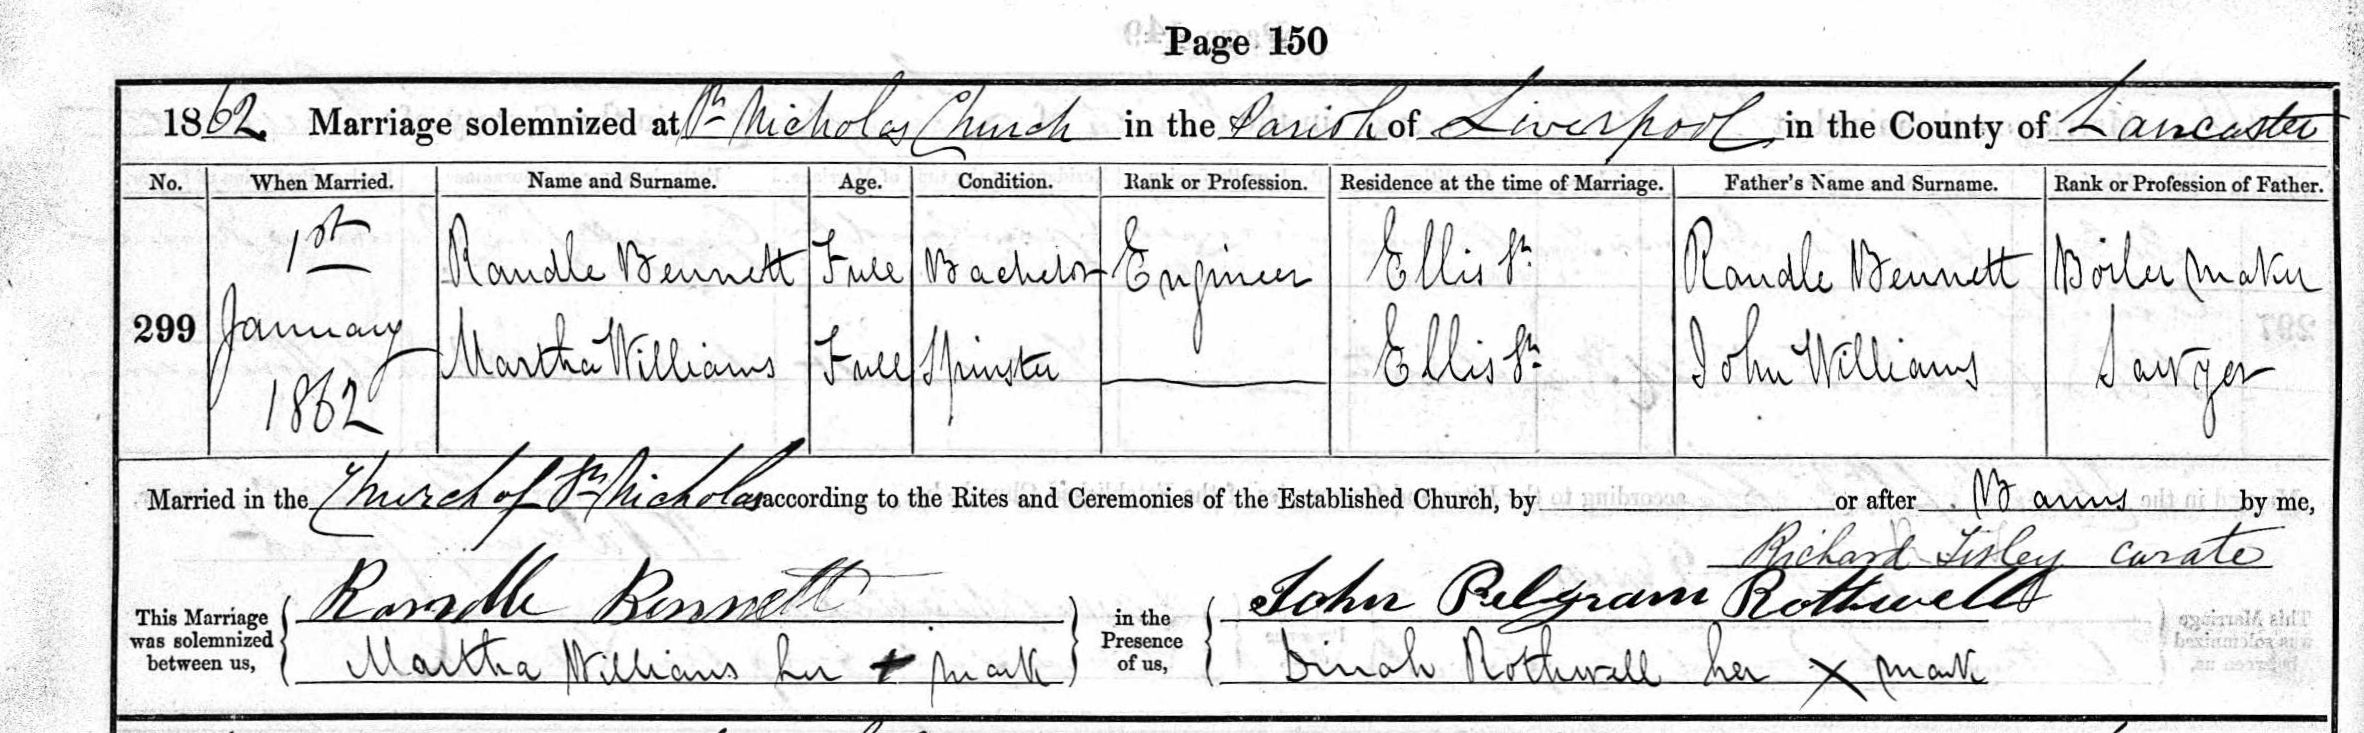 Page 150
1862 Marriage solemnized at St Nicholas Church in the Parish of Liverpool in the County of Lancaster
No. When Married. Name and Surname. Age. Condition. Rank or Profession. Residence at the time of Marriage. Father's Name and Surname. Rank or Profession of Father.
299 1st January 1862 Randle Bennett Full Bachelor Engineer Ellis St Randle Bennett Boiler Maker
Martha Williams Full Spinster Ellis St John Williams Sawyer
Married in the Church of St Nicholas according to the Rites and Ceremonies of the Established Church, by or after Banns by me,
Richard Tisley Curate
This Marriage was solemnized between us, Randle Bennett in the Presence of us, John Pelgram Rothwell
Martha Williams her + mark Dinah Rothwell her X mark